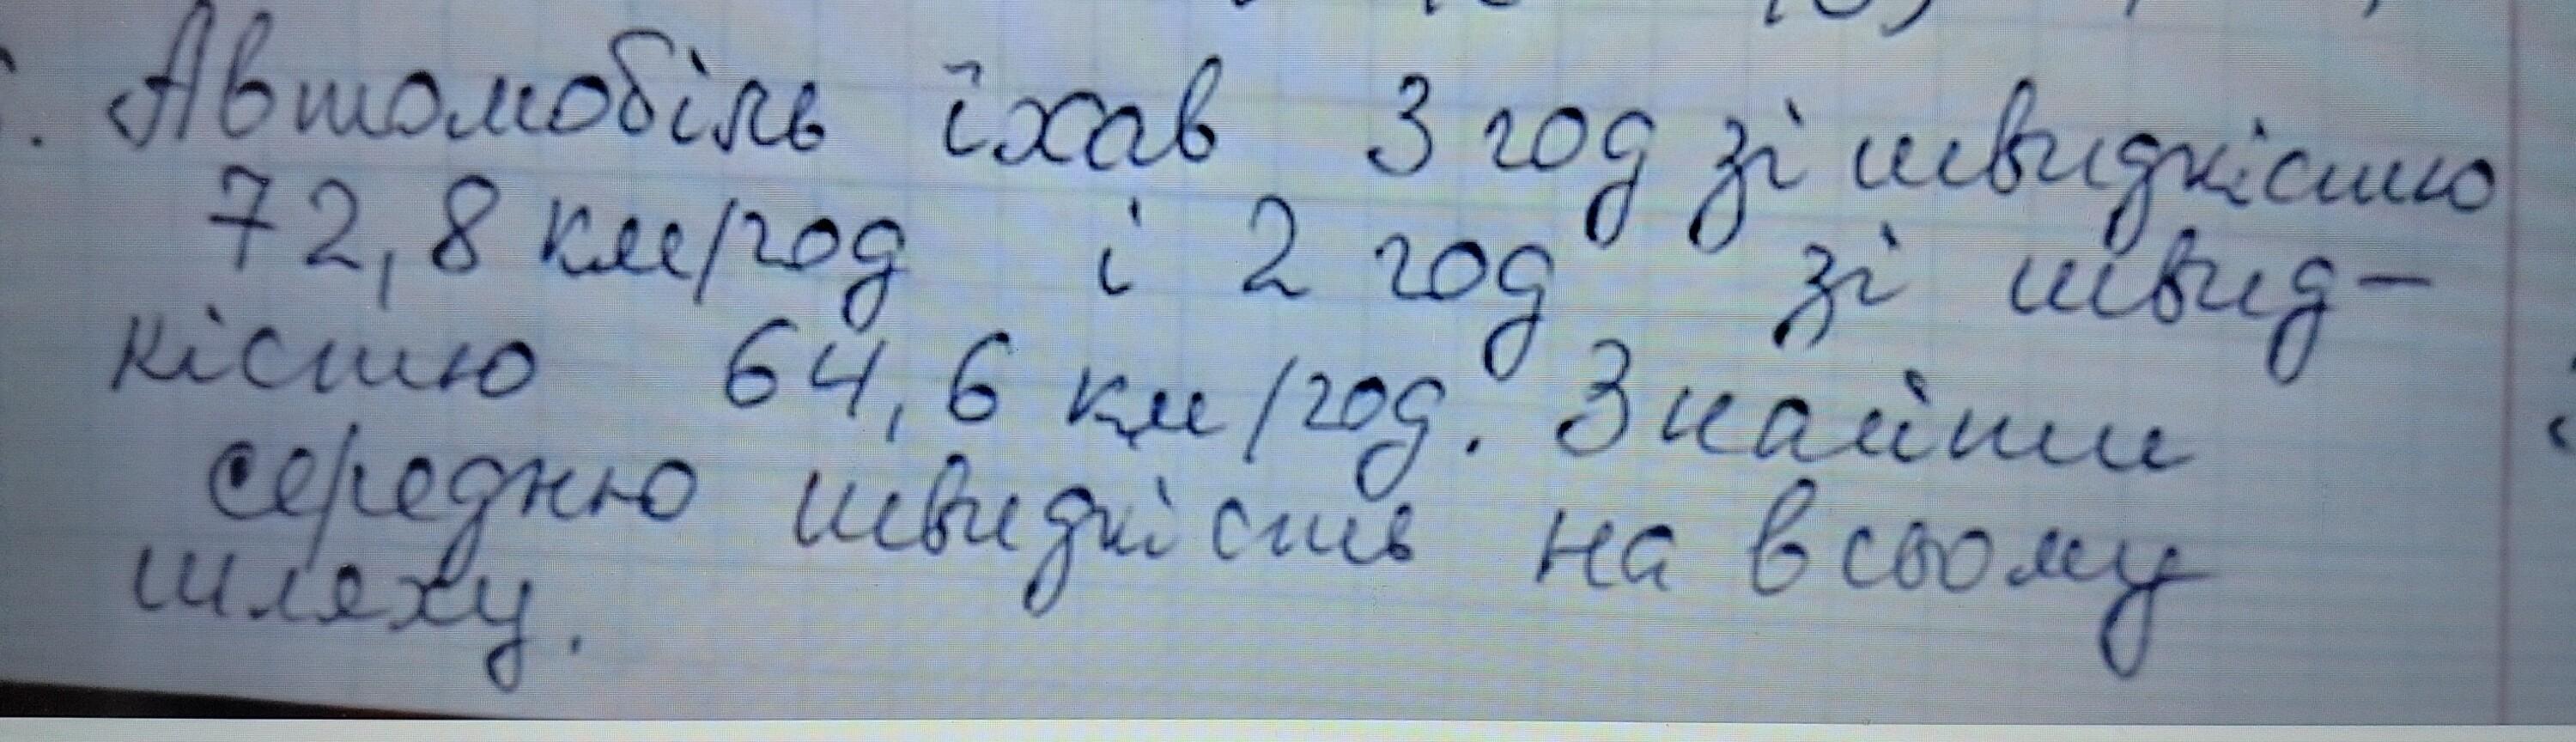 Автомобіль їхав 3 год зі швидкістю
72,8 км/год і 2 год зі швид-
кістю 64,6 км/год. Знайти
середню швидкість на всьому
шляху.